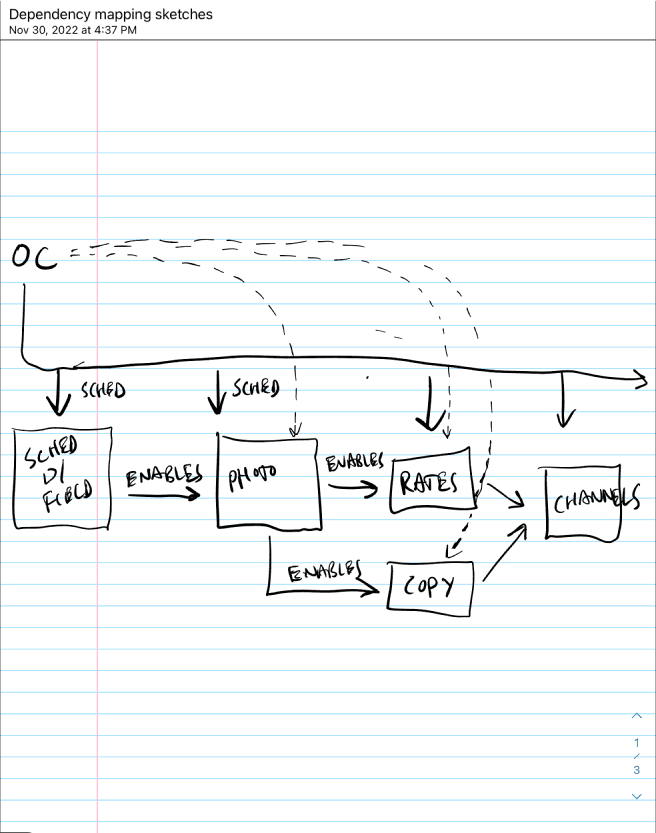 Dependency mapping sketches
Nov 30, 2022 at 4:37 PM
OC
SCHED
SCHED
SCHED
W/
FIELD
ENABLES
PHOTO
ENABLES
RATES
CHANNELS
ENABLES
COPY
1
/
3